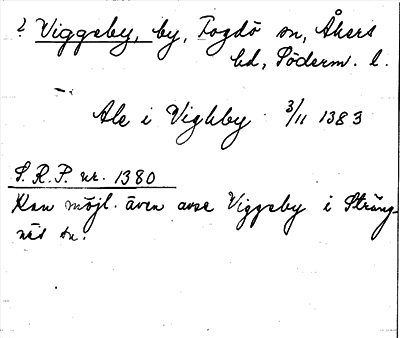 ? Viggeby, by, Fogdö sn, Åkers
hd, Söderm. l.
Ale i Vighby 3/11 1383
S.R.P. nr. 1380
Kan möjl. även avse Viggeby i Sträng-
näs sn.